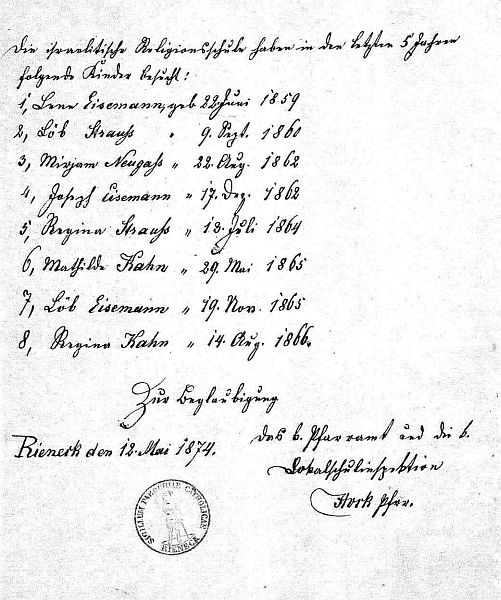 Die israelitische Religionsschule haben in den letzten 5 Jahren
folgende Kinder besucht:
1, Lene Eisemann, geb 22 Juni 1859
2, Löb Strauss " 9. Sept. 1860
3, Mirjam Neugass " 22. Aug. 1862
4, Joseph Eisemann " 17. Dez. 1862
5, Regina Strauss " 18. Juli 1864
6, Mathilde Kahn " 29. Mai 1865
7, Löb Eisemann " 19. Nov. 1865
8, Regina Kahn " 14. Aug. 1866.
Zur Beglaubigung
Rieneck den 12. Mai 1874.
Das k. Pfarramt und die k.
Lokalschulinspektion
Pfrr.
SIGILLUM PAROCHIAE CATHOLICAE
RIENECK